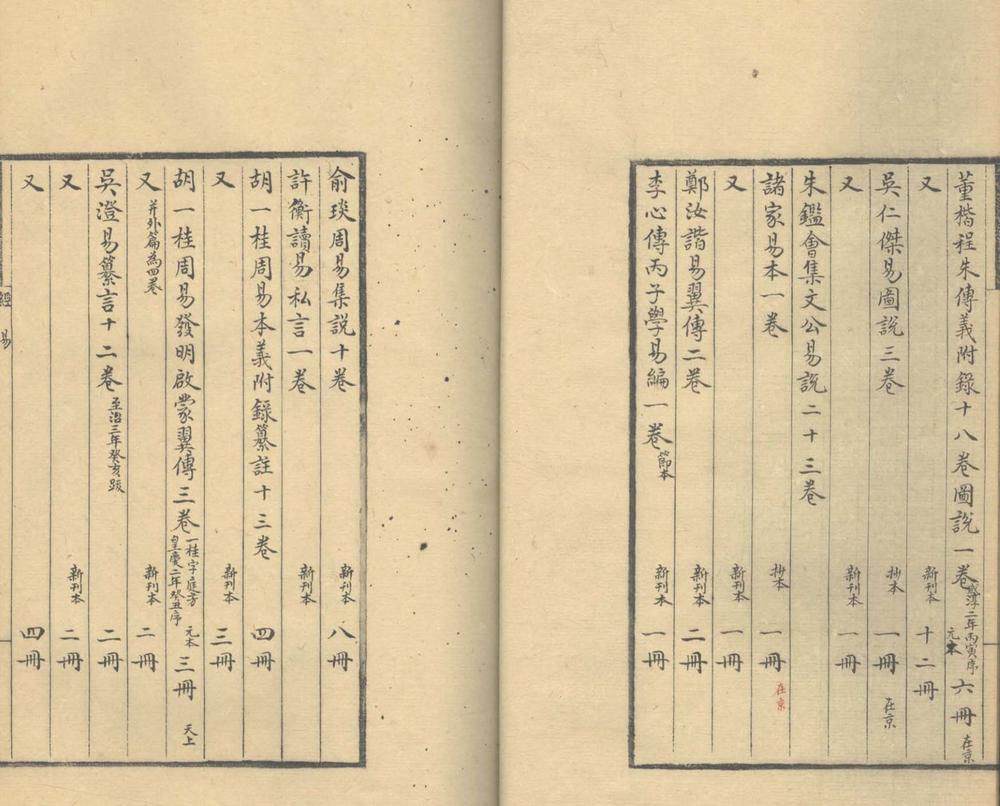 董楷程朱傳義附錄十八卷圖說一卷 咸淳二年丙寅序 元本 六冊 在京
又 新刊本 十二冊
吳仁傑易圖說三卷 抄本 一冊 在京
又 新刊本 一冊
朱鑑會集文公易說二十三卷
諸家易本一卷 抄本 一冊 在京
又 新刊本 一冊
鄭汝諧易翼傳二卷 新刊本 二冊
李心傳丙子學易編一卷 節本 新刊本 一冊
俞琰周易集說十卷 新刊本 八冊
許衡讀易私言一卷 新刊本 一冊
胡一桂周易本義附錄纂註十三卷 四冊
又 新刊本 三冊
胡一桂周易發明啟蒙翼傳三卷 一桂字庭芳 皇慶二年癸丑序 元本 三冊 天上
又 并外篇為四卷 新刊本 二冊
吳澄易纂言十二卷 至治三年癸亥跋 二冊
又 新刊本 二冊
又 四冊
經 易